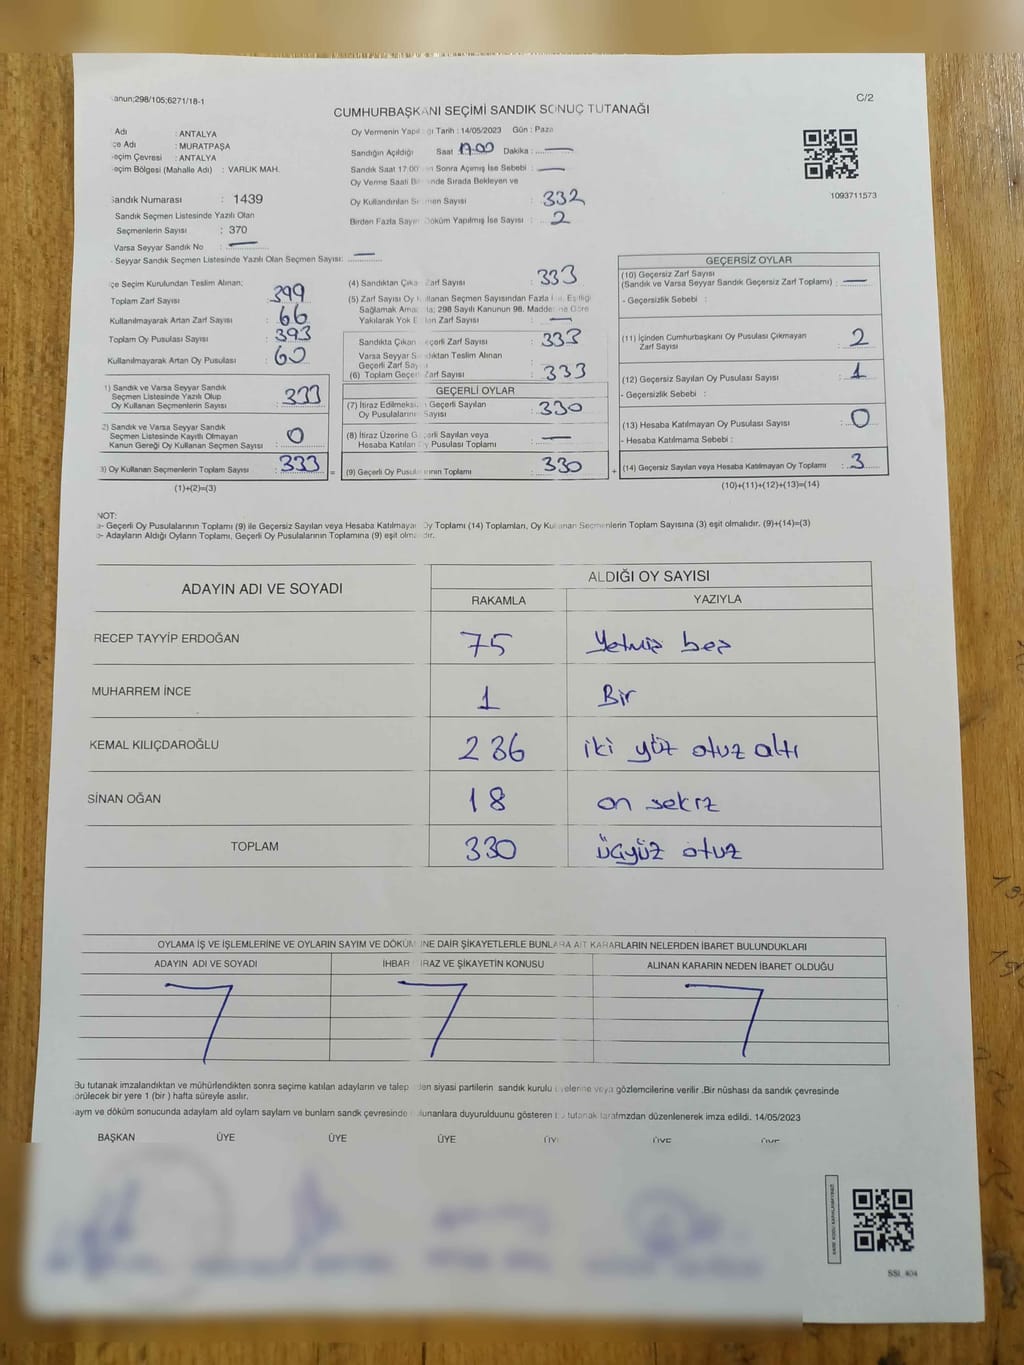 anun;298/105;6271/18-1
C/2
CUMHURBAŞKANI SEÇİMİ SANDIK SONUÇ TUTANAĞI
Adı : ANTALYA
çe Adı : MURATPAŞA
eçim Çevresi : ANTALYA
eçim Bölgesi (Mahalle Adı) : VARLIK MAH.
Sandık Numarası : 1439
Sandık Seçmen Listesinde Yazılı Olan
Seçmenlerin Sayısı : 370
Varsa Seyyar Sandık No : —
- Seyyar Sandık Seçmen Listesinde Yazılı Olan Seçmen Sayısı: —
Oy Vermenin Yapıl ğı Tarih : 14/05/2023 Gün : Paza
Sandığın Açıldığı Saat 17:00 Dakika : —
Sandık Saat 17.00 n Sonra Açımış İse Sebebi : —
Oy Verme Saati Bi nde Sırada Bekleyen ve
Oy Kullandırılan Se men Sayısı : 332
Birden Fazla Sayım Döküm Yapılmış İse Sayısı : 2
1093711573
çe Seçim Kurulundan Teslim Alınan;
Toplam Zarf Sayısı : 399
Kullanılmayarak Artan Zarf Sayısı : 66
Toplam Oy Pusulası Sayısı : 393
Kullanılmayarak Artan Oy Pusulası : 60
1) Sandık ve Varsa Seyyar Sandık
Seçmen Listesinde Yazılı Olup
Oy Kullanan Seçmenlerin Sayısı : 333
2) Sandık ve Varsa Seyyar Sandık
Seçmen Listesinde Kayıtlı Olmayan
Kanun Gereği Oy Kullanan Seçmen Sayısı : 0
3) Oy Kullanan Seçmenlerin Toplam Sayısı : 333 =
(1)+(2)=(3)
(4) Sandıktan Çıka Zarf Sayısı : 333
(5) Zarf Sayısı Oy llanan Seçmen Sayısından Fazla İse, Eşitliği
Sağlamak Ama la; 298 Sayılı Kanunun 98. Maddesine Göre
Yakılarak Yok E len Zarf Sayısı : —
Sandıkta Çıkan eçerli Zarf Sayısı : 333
Varsa Seyyar S ndıktan Teslim Alınan
Geçerli Zarf Say ı
(6) Toplam Geçer Zarf Sayısı : 333
GEÇERLİ OYLAR
(7) İtiraz Edilmeksi n Geçerli Sayılan
Oy Pusulaların Sayısı : 330
(8) İtiraz Üzerine G çerli Sayılan veya
Hesaba Katılan y Pusulası Toplamı : —
(9) Geçerli Oy Pusula rının Toplamı : 330 +
GEÇERSİZ OYLAR
(10) Geçersiz Zarf Sayısı
(Sandık ve Varsa Seyyar Sandık Geçersiz Zarf Toplamı) : —
- Geçersizlik Sebebi :
(11) İçinden Cumhurbaşkanı Oy Pusulası Çıkmayan
Zarf Sayısı : 2
(12) Geçersiz Sayılan Oy Pusulası Sayısı : 1
- Geçersizlik Sebebi :
(13) Hesaba Katılmayan Oy Pusulası Sayısı : 0
- Hesaba Katılmama Sebebi :
(14) Geçersiz Sayılan veya Hesaba Katılmayan Oy Toplamı : 3
(10)+(11)+(12)+(13)=(14)
NOT:
a- Geçerli Oy Pusulalarının Toplamı (9) ile Geçersiz Sayılan veya Hesaba Katılmayan Oy Toplamı (14) Toplamları, Oy Kullanan Seçmenlerin Toplam Sayısına (3) eşit olmalıdır. (9)+(14)=(3)
b- Adayların Aldığı Oyların Toplamı, Geçerli Oy Pusulalarının Toplamına (9) eşit olmalıdır.
ADAYIN ADI VE SOYADI
ALDIĞI OY SAYISI
RAKAMLA YAZIYLA
RECEP TAYYİP ERDOĞAN 75 Yetmiş beş
MUHARREM İNCE 1 Bir
KEMAL KILIÇDAROĞLU 236 iki yüz otuz altı
SİNAN OĞAN 18 on sekiz
TOPLAM 330 üçyüz otuz
OYLAMA İŞ VE İŞLEMLERİNE VE OYLARIN SAYIM VE DÖKÜM NE DAİR ŞİKAYETLERLE BUNLARA AİT KARARLARIN NELERDEN İBARET BULUNDUKLARI
ADAYIN ADI VE SOYADI İHBAR İRAZ VE ŞİKAYETİN KONUSU ALINAN KARARIN NEDEN İBARET OLDUĞU
Bu tutanak imzalandıktan ve mühürlendikten sonra seçime katılan adayların ve talep den siyasi partilerin sandık kurulu üyelerine veya gözlemcilerine verilir .Bir nüshası da sandık çevresinde
örülecek bir yere 1 (bir ) hafta süreyle asılır.
aym ve döküm sonucunda adaylam ald oylam saylam ve bunlam sandk çevresinde ulunanlara duyurulduunu gösteren bu tutanak tarafmzdan düzenlenerek imza edildi. 14/05/2023
BAŞKAN ÜYE ÜYE ÜYE ÜYE ÜYE ÜYE
SSL 404